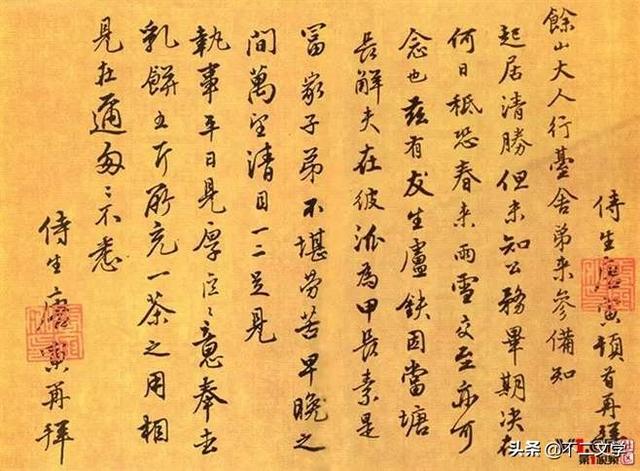 侍生唐寅頓首再拜
餘山大人行臺舍弟來參備知
起居清勝但未知公務畢期決在
何日秪恐春來雨雪交至亦可
念也茲有友生盧鈇因當塘
長解夫在彼派為甲長素是
富家子弟不堪勞苦早晚之
間萬望清目一二足見
執事平日見厚區〻意奉去
乳餅五斤聊充一茶之用相
見在邇匆〻不悉
侍生唐寅再拜
头条 @不二文学